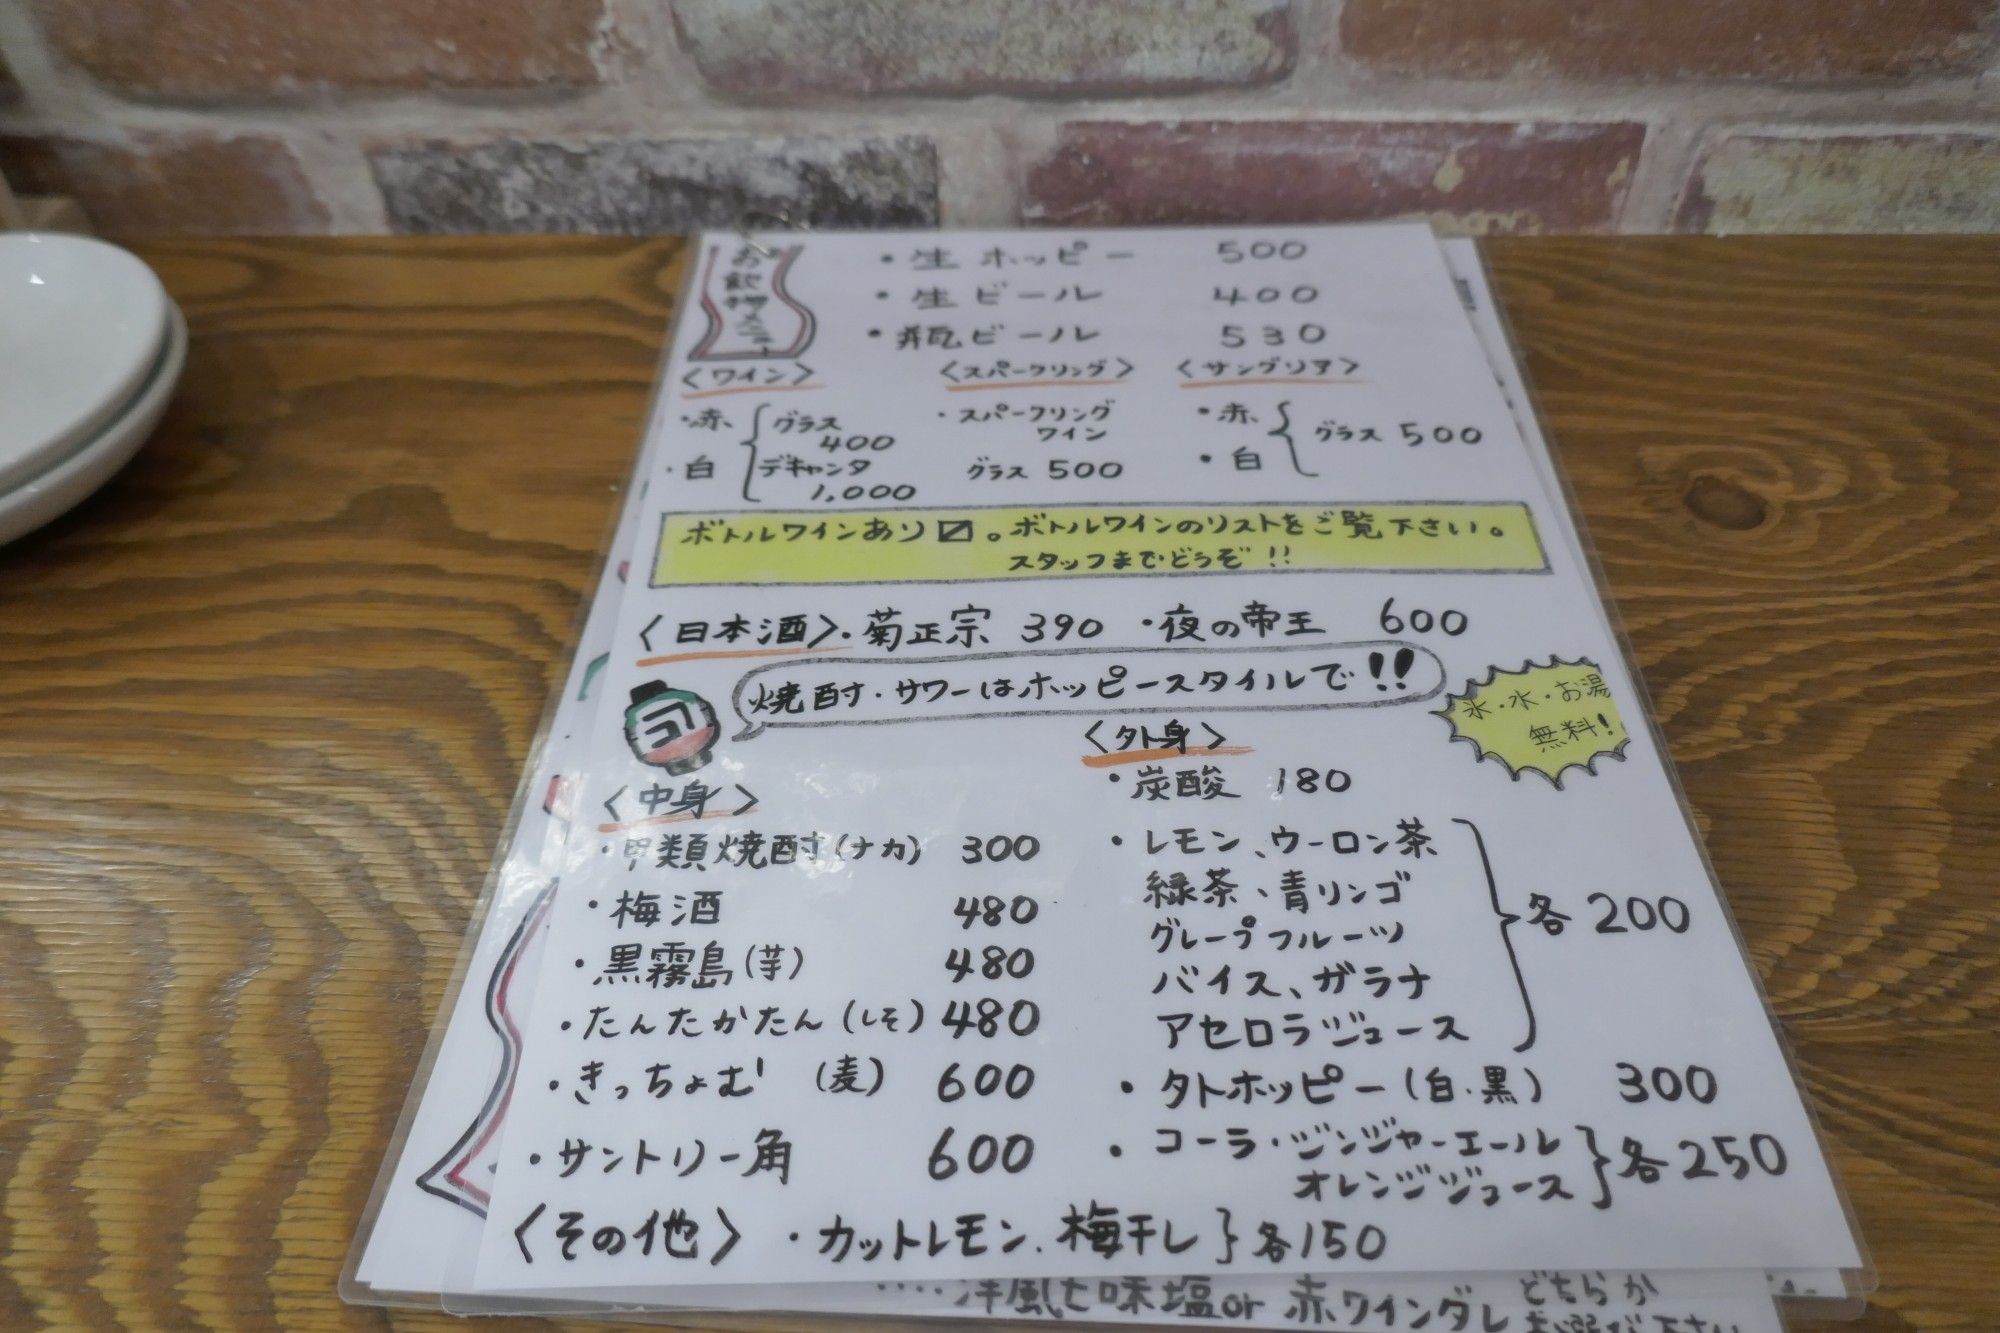 お飲物メニュー
・生ホッピー 500
・生ビール 400
・瓶ビール 530
〈ワイン〉
・赤
・白
グラス
400
デキャンタ
1,000
〈スパークリング〉
・スパークリング
ワイン
グラス 500
〈サングリア〉
・赤
・白
グラス 500
ボトルワインあり〼。ボトルワインのリストをご覧下さい。
スタッフまでどうぞ!!
〈日本酒〉・菊正宗 390 ・夜の帝王 600
焼酎・サワーはホッピースタイルで!!
氷・水・お湯
無料!
〈中身〉
・甲類焼酎(ナカ) 300
・梅酒 480
・黒霧島(芋) 480
・たんたかたん(しそ) 480
・きっちょむ (麦) 600
・サントリー角 600
〈外身〉
・炭酸 180
・レモン、ウーロン茶
緑茶、青リンゴ
グレープフルーツ
バイス、ガラナ
アセロラジュース
各200
・外ホッピー(白・黒) 300
・コーラ・ジンジャーエール
オレンジジュース
各250
〈その他〉・カットレモン、梅干し}各150
....洋風七味塩or赤ワインダレ どちらか